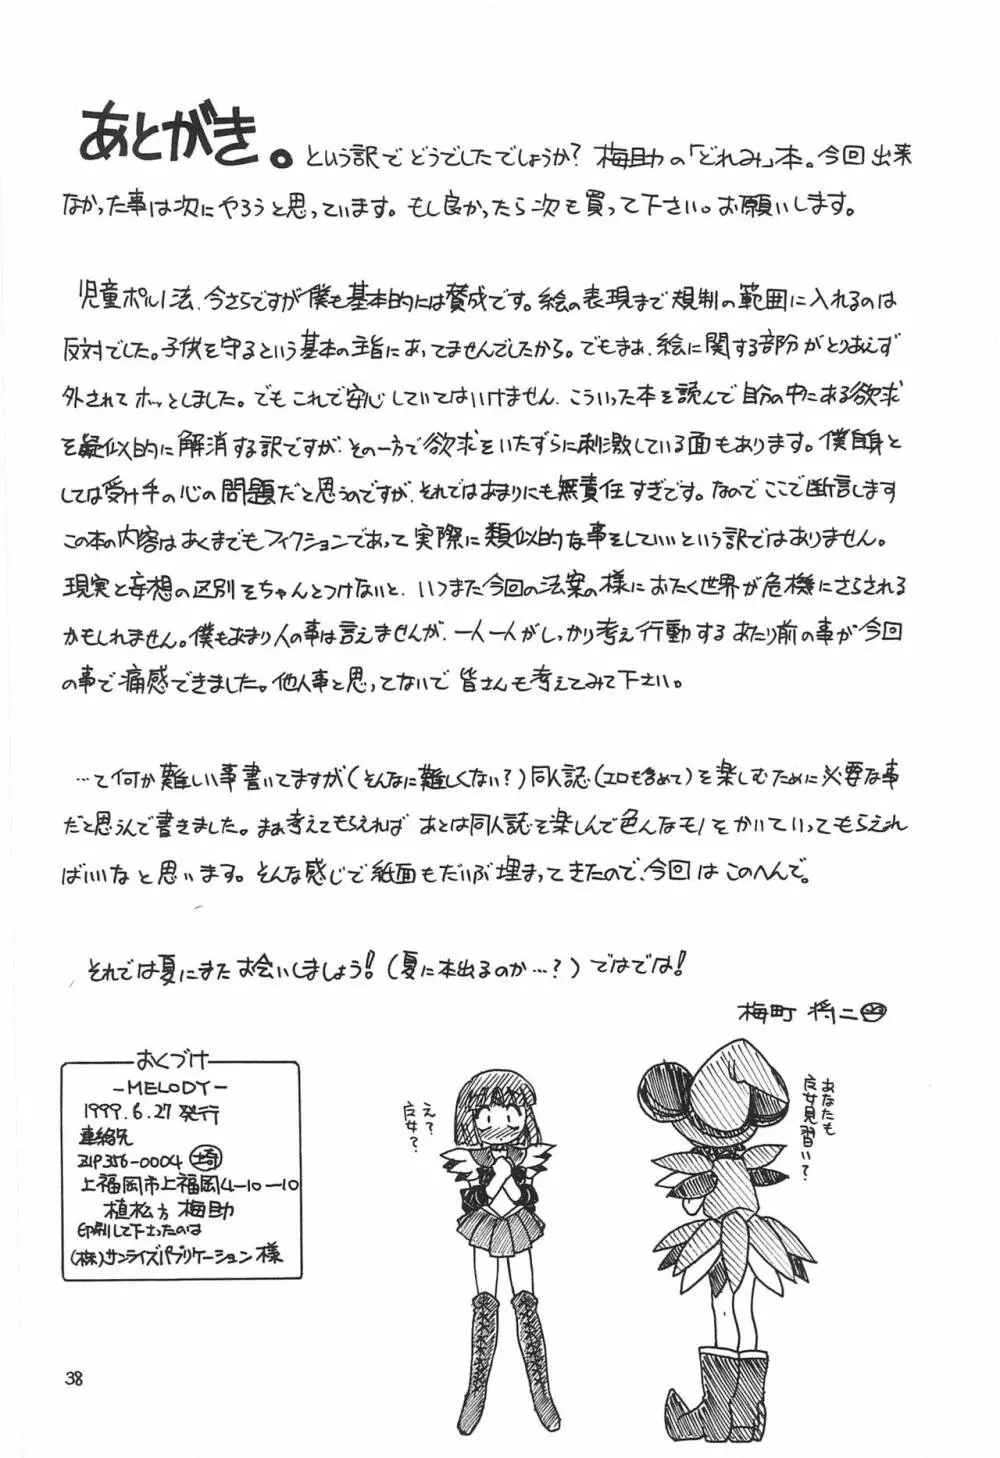 あとがき。という訳でどうでしたでしょうか？梅助の「どれみ」本。今回出来
なかった事は次にやろうと思っています。もし良かったら次も買って下さい。お願いします。
児童ポルノ法、今さらですが僕も基本的には賛成です。絵の表現まで規制の範囲に入れるのは
反対でした。子供を守るという基本の主旨にあってませんでしたから。でもまぁ、絵に関する部分がとりあえず
外されてホッとしました。でもこれで安心していてはいけません、こういった本を読んで自分の中にある欲求
を疑似的に解消する訳ですが、その一方で欲求をいたずらに刺激している面もあります。僕自身と
しては受け手の心の問題だと思うのですが、それではあまりにも無責任すぎです。なのでここで断言します
この本の内容はあくまでもフィクションであって実際に類似的な事をしていいという訳ではありません。
現実と妄想の区別をちゃんとつけないと、いつまた今回の法案の様におたく世界が危機にさらされる
かもしれません。僕もあまり人の事は言えませんが、一人一人がしっかり考え行動するあたり前の事が今回
の事で痛感できました。他人事と思ってないで皆さんも考えてみて下さい。
…て何か難しい事書いてますが(そんなに難しくない？)同人誌(エロも含めて)を楽しむために必要な事
だと思うんで書きました。まぁ考えてもらえればあとは同人誌を楽しんで色んなモノをかいていってもらえれ
ばいいなと思います。そんな感じで紙面もだいぶ埋まってきたので、今回はこのへんで。
それでは夏にまたお会いしましょう！(夏に本出るのか…？)ではでは！
梅町 将二
おくづけ
-MELODY-
1999.6.27発行
連絡先
ZIP356-0004 埼
上福岡市上福岡4-10-10
植松方 梅助
印刷して下さったのは
(株)サンライズパブリケーション様
え？
魔女？
あなたも
魔女見習い？
38